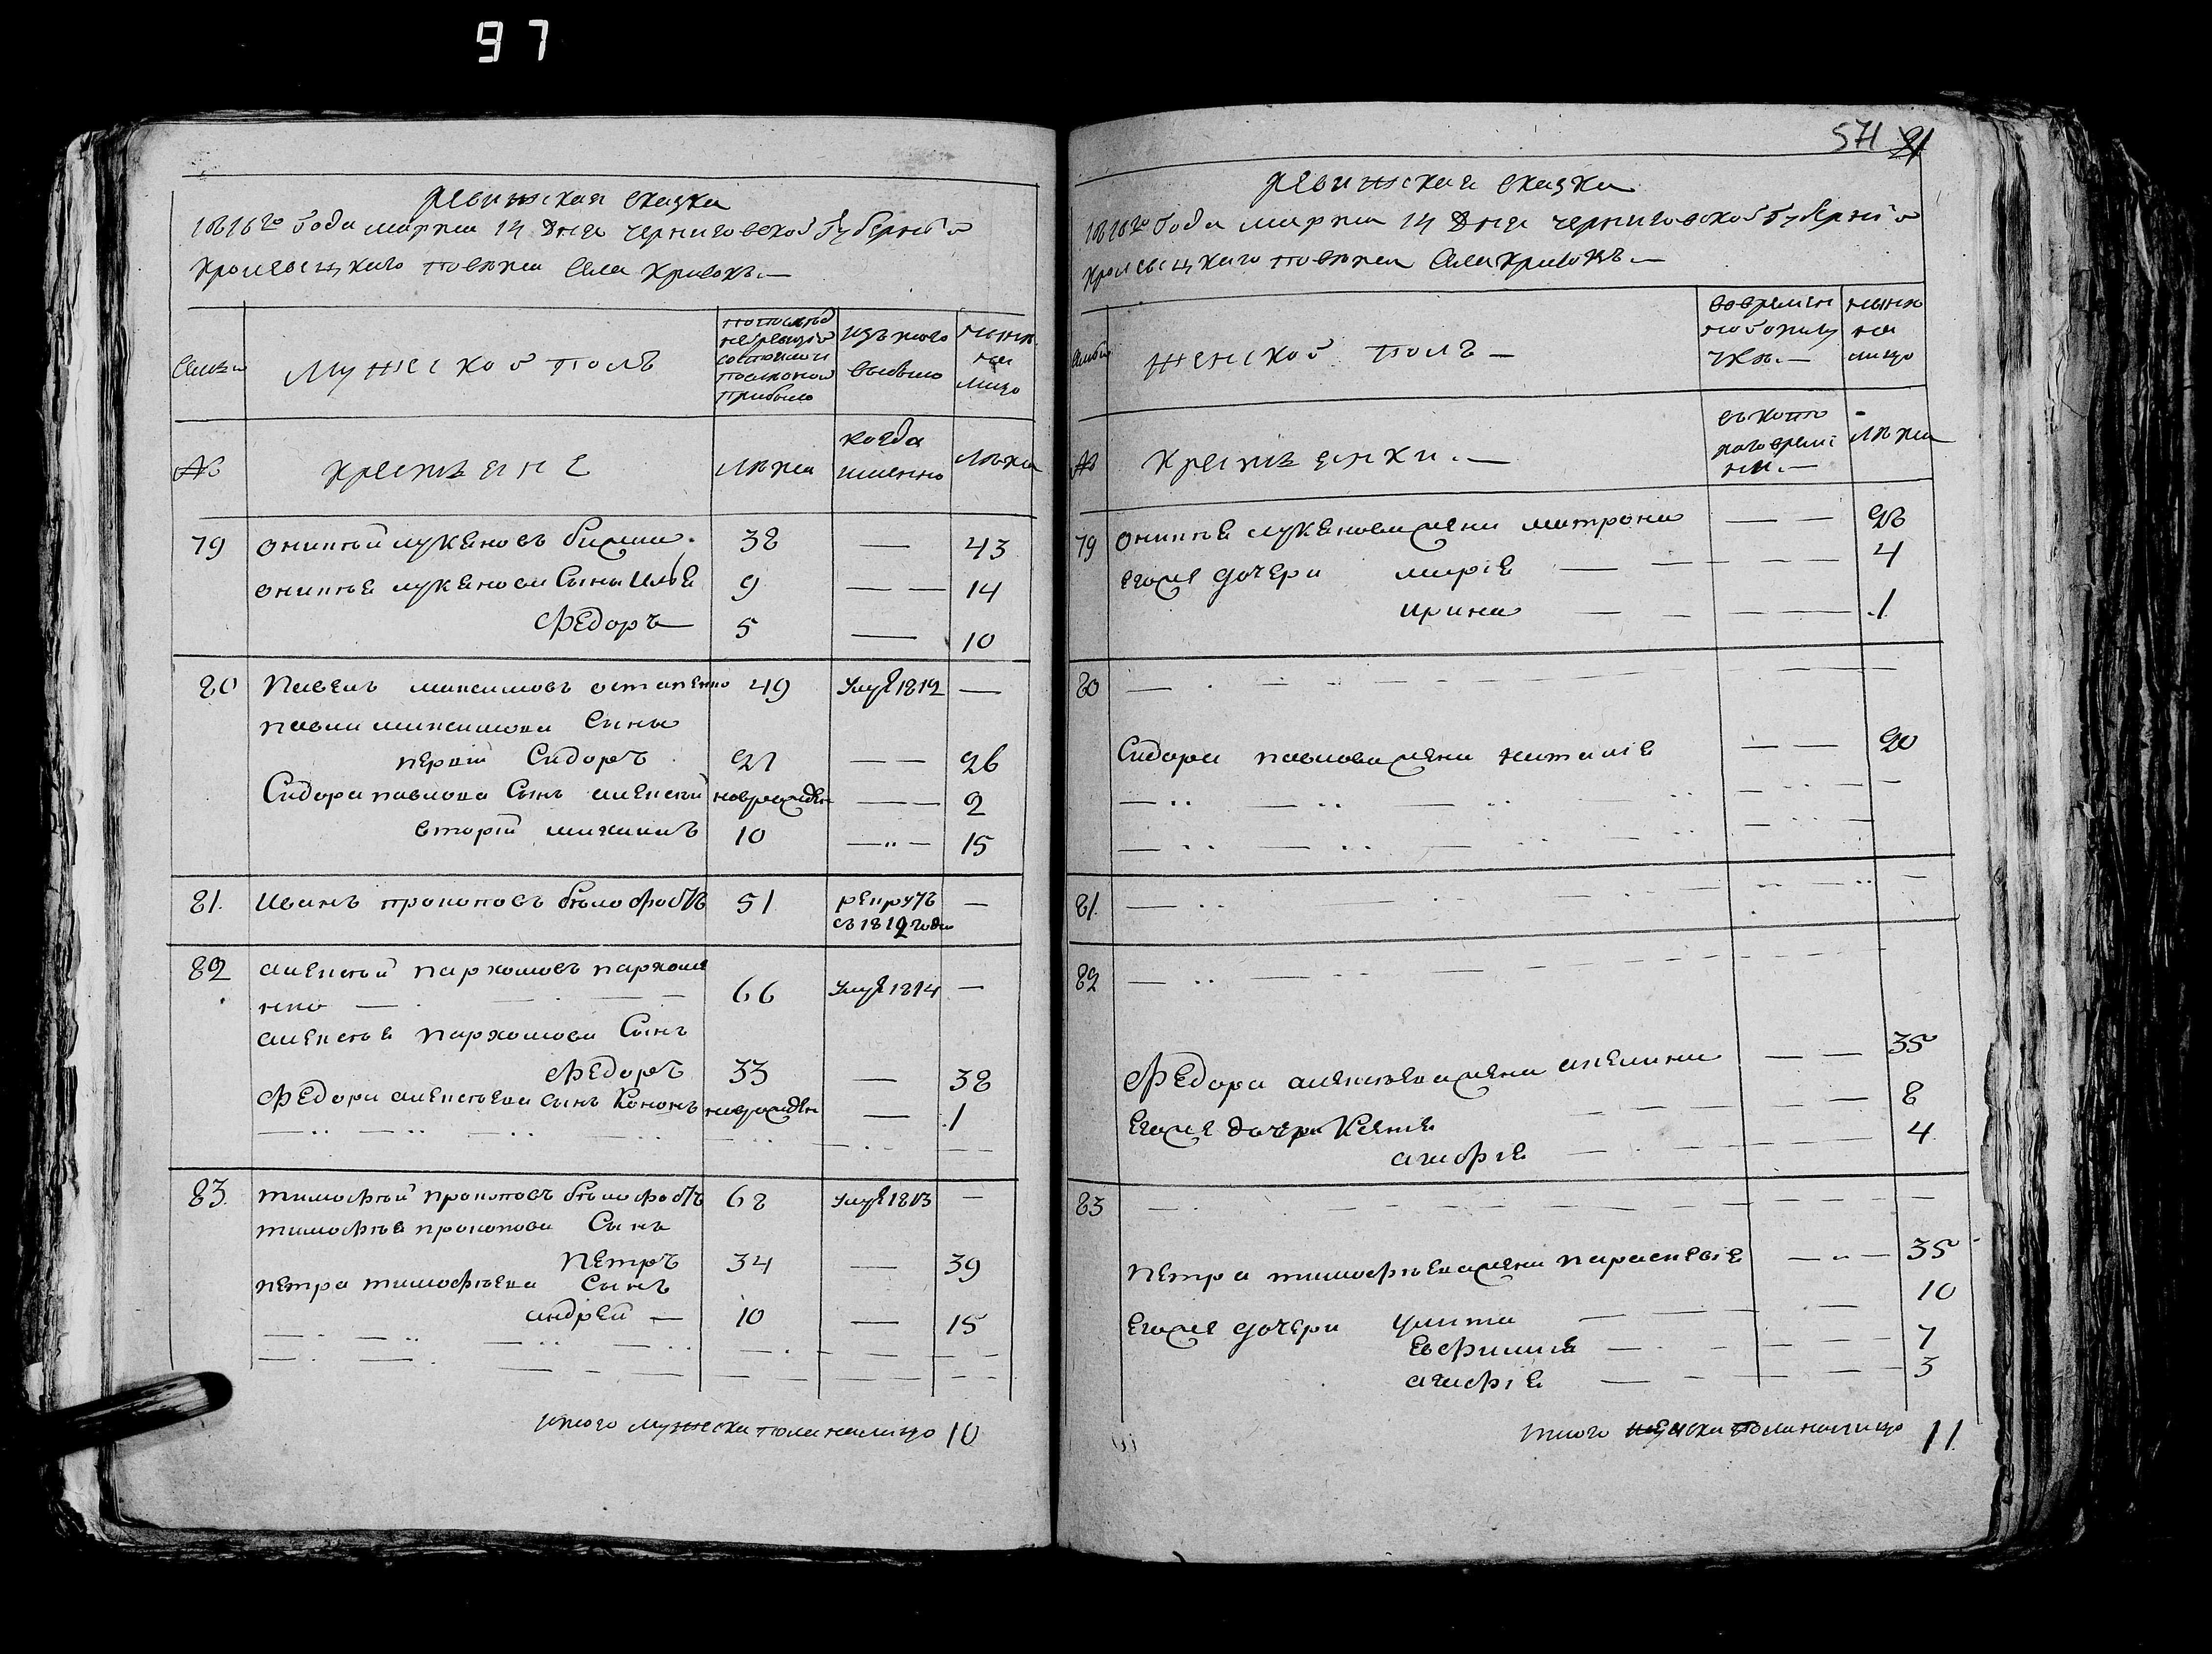 97
Ревижская сказка
1816го года марта 14 дня черниговской губернїи
Кролевецкаго повѣта села
Семьи
Мужеской полъ
по послѣд
ней ревизїи
состояло и
после оной
прибыло
изъ того
выбыло
нынѣ
на
лицо
№
крестьяне
лѣта
когда
именно
лѣта
79 Онипъй Лукяновъ 38 — 43
Онипъя Лукянова сыны Илья 9 — — 14
Федоръ — 5 — 10
80 Павелъ Максимовъ Остапенко 49 умре 1812 —
Павла Максимова сыны
перьвій Сидоръ 21 — — 26
Сидора Павлова сынъ Алексѣй новрожден — — 2
вторій Михаилъ 10 — 15
81. Иванъ Прокоповъ 51 рекрутъ —
съ 1812 года
82 Алексѣй Пархомовъ Пархоме
нко — 66 умре 1814 —
Алексѣя Пархомова сынъ
Федоръ 33 — 38
Федора Алексѣева сынъ Кононъ новрожден — 1
83. Тимофѣй Прокоповъ 68 умре 1813 —
Тимофѣя Прокопова сынъ
Петръ 34 — 39
Петра Тимофѣева сынъ
Андрей — 10 — 15
итого мужеска пола налицо 10
571 21
Ревижская сказка
1816го года марта 14 дня черниговской губернїи
Кролевецкаго повѣта села
Семьи
Женской полъ —
во времен
ной отлу
чкѣ. —
нынѣ
на
лицо
№
крестьянки. —
съ кото
раго време
ни. —
лѣта
79 Онипъя Лукянова жена Матрона — — 28
Егож дочери Марїя — — — — 4
Ирина — — — — 1
80 —
Сидора Павлова жена Наталїя — — 20
81. —
82 —
Федора Алексѣева жена Акелина — — 35
Егож дочери Ксенїя — — — — 8
Агафїя — — — — 4
83 —
Петра Тимофѣева жена Параскевїя — — 35
Егож дочери Улита — — — 10
Евфимїя — — — 7
Агафїя — — — 3
итого женска пола налицо 11